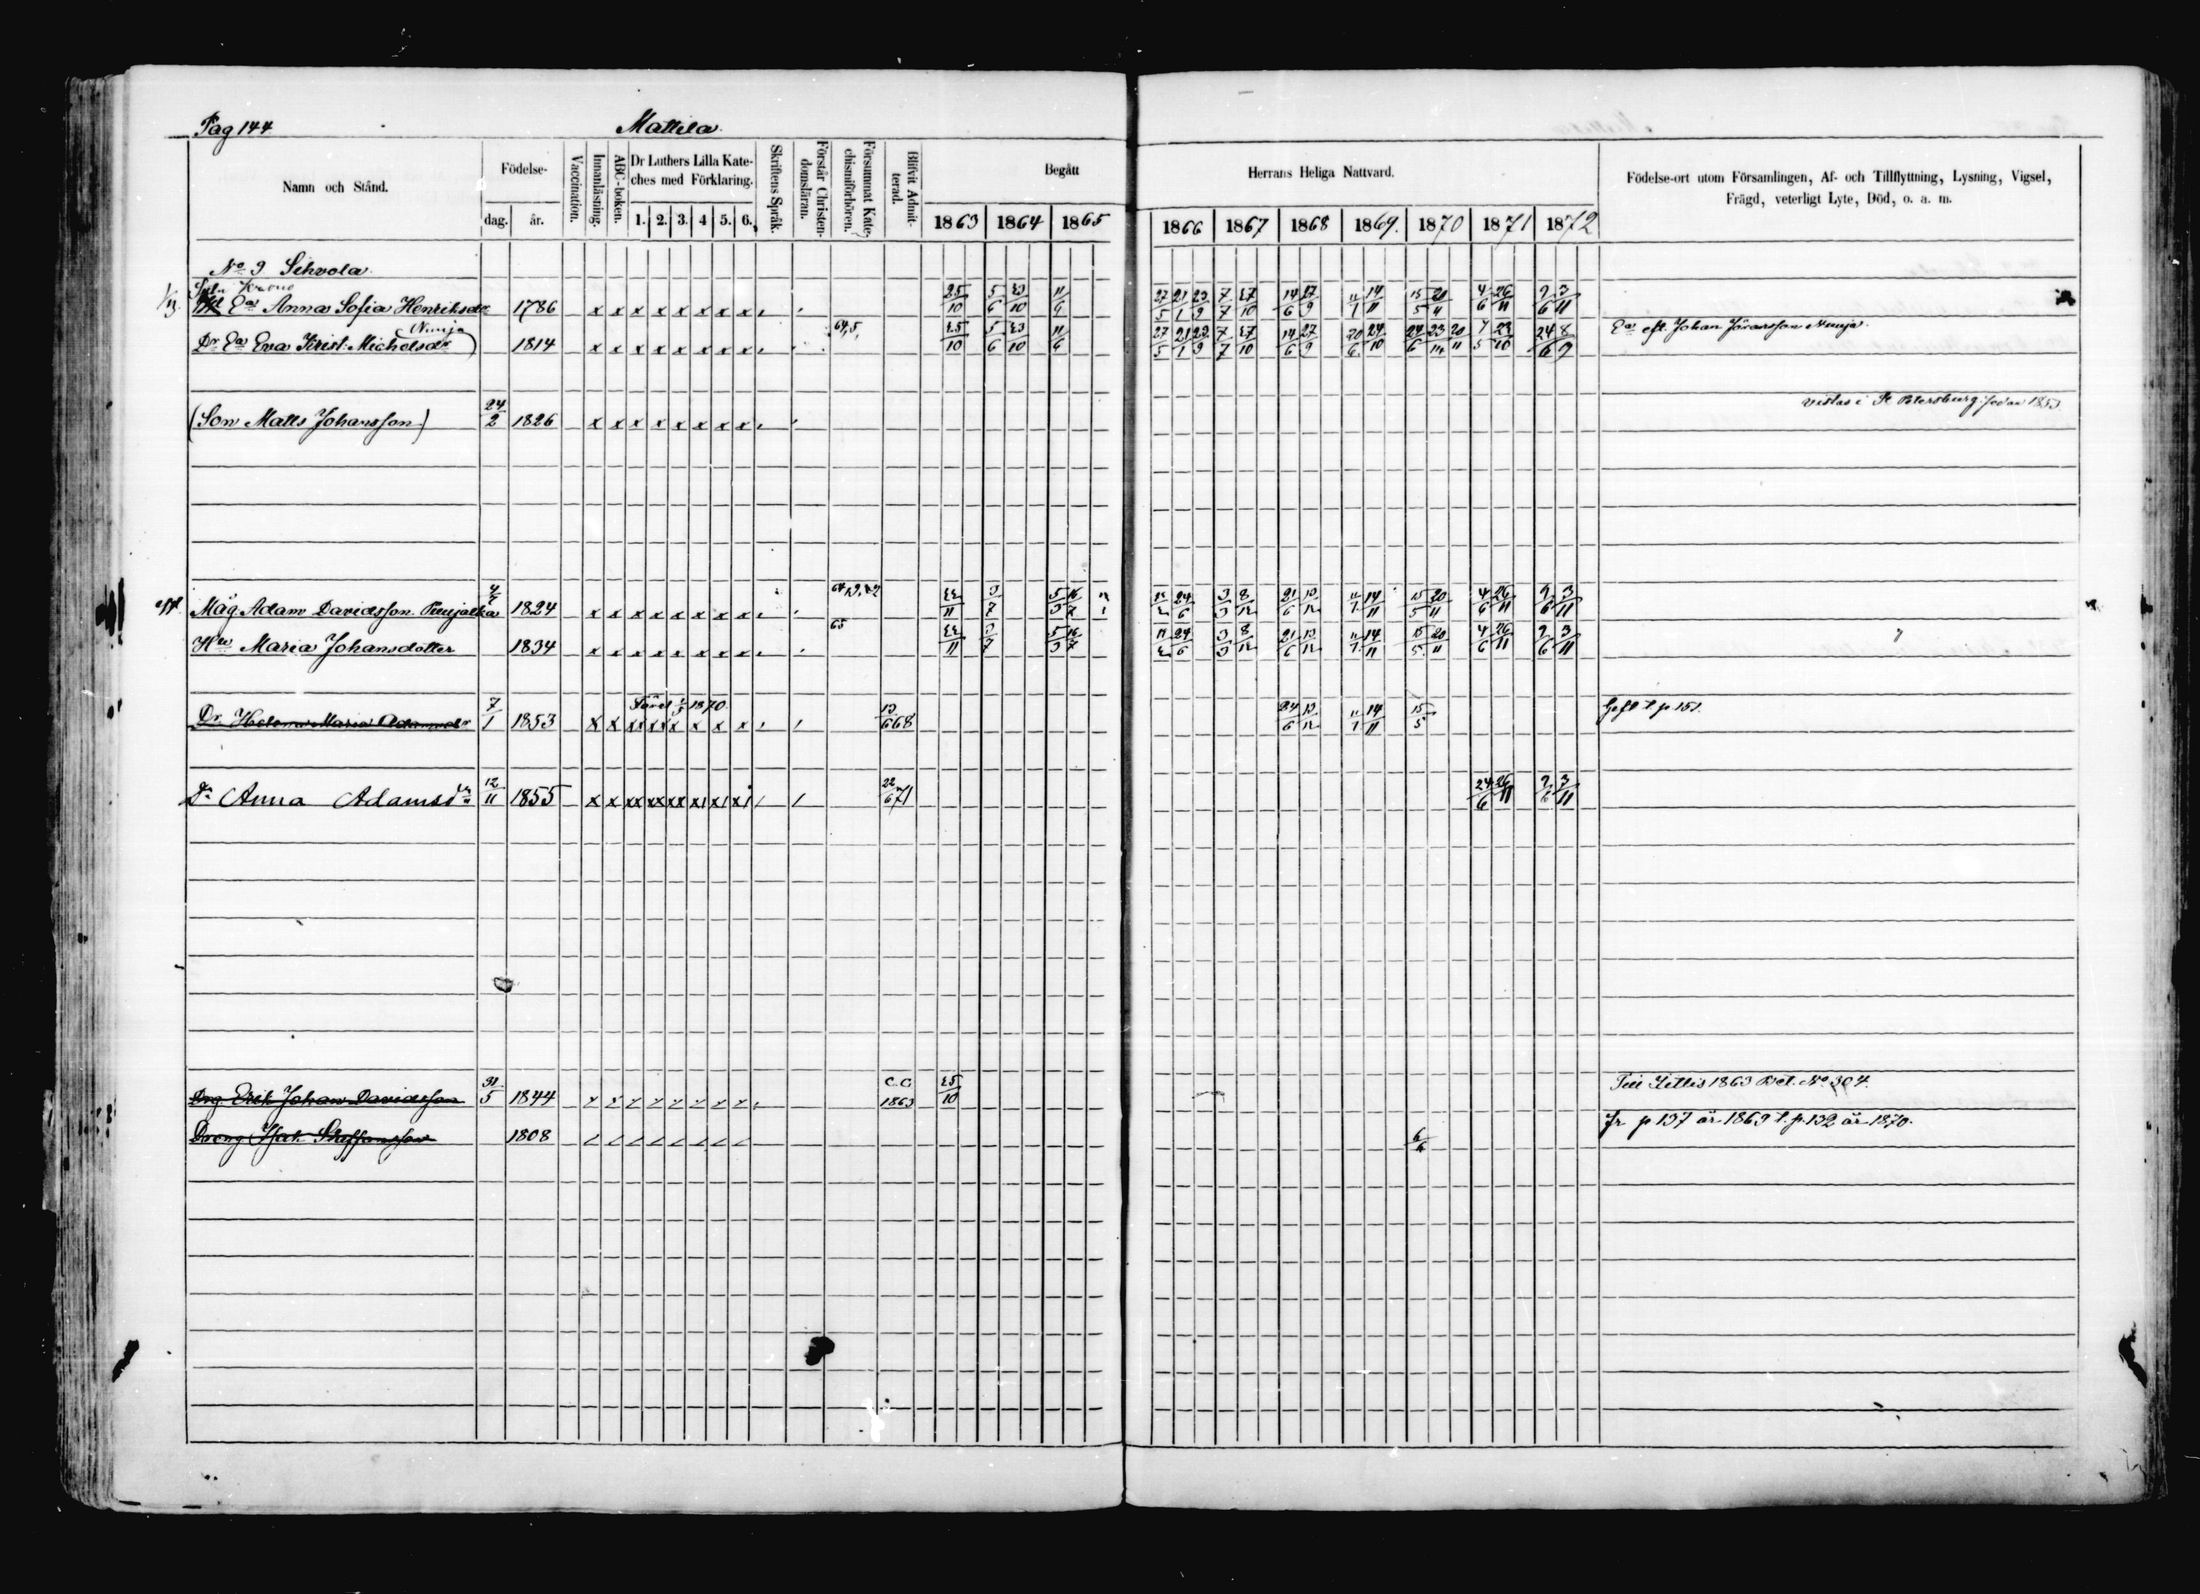 Pag 144
Mattila
Namn och Stånd.
Födelse-
dag.
år.
Vaccination.
Innanläsning.
ABC-boken.
Dr Luthers Lilla Kate-
ches med Förklaring.
1. 2. 3. 4 5. 6.
Skriftens Språk.
Förstår Christen-
domsläran.
Försummat Kate-
chismiförhören.
Blifvit Admit-
terad.
Begått
Herrans Heliga Nattvard.
1863 1864 1865
1866 1867 1868 1869. 1870 1871 1872
Födelse-ort utom Församlingen, Af- och Tillflyttning, Lysning, Vigsel,
Frägd, veterligt Lyte, Död, o. a. m.
No 9 Sihvola
Ea Anna Sofia Henriksdr 1786 x x x x x x x x 25/10 5/6 23/10 11/6 27/5 21/1 29/9 7/7 27/10 14/6 27/9 11/1 14/11 15/5 4/6 26/11 9/6 3/11
Nunja
Dr Ea Eva Krist. Michelsdr) 1814 x x x x x x x x 64,5, 25/10 5/6 23/10 11/6 27/5 21/1 29/9 7/7 27/10 14/6 27/9 20/6 24/10 24/6 23 20/11 23/10 24/6 8/9 Ea eft. Johan Jöransson Nunja.
vistas i St Petersburg sedan 1853
(Son Matts Johansson) 24/2 1826 x x x x x x x x
Måg. Adam Davidsson Punjalka 1824 x x x x x x x x 22/11 3/7 5/3 16/7 24/6 3/3 8/12 21/6 13/12 14/11 15/5 20/11 4/6 26/11 9/6 3/11
Hu Maria Johansdotter 1834 x x x x x x x x 65 22/11 3/7 5/3 16/7 24/6 3/3 8/12 21/6 13/12 14/11 15/5 20/11 4/6 26/11 9/6 3/11
Dr Helena Maria Adamsdr 7/1 1853 x x xx xx x x x x 13/6 68 24/6 13/12 14/11 15/5 Gift t p 151.
Dr Anna Adamsdr 12/11 1855 x x xx xx xx x x x 22/6 71 24/6 26/11 9/6 3/11
Drg. Erik Johan Davidsson 31/5 1844 C.C. 1863 25/10 Till Littis 1863 Bet. No 304.
Dreng Isak Staffansson 1808 6/6 fr p 137 år 1869 t. p. 132 år 1870.